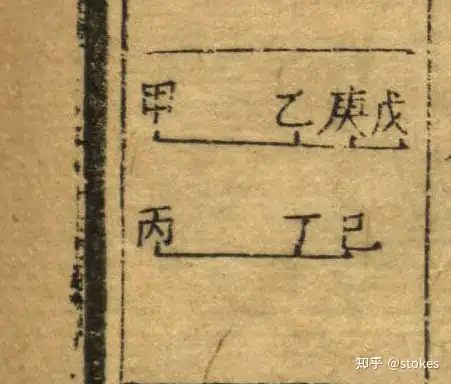 甲 乙 庚 戊
丙 丁 己
知乎 @stokes